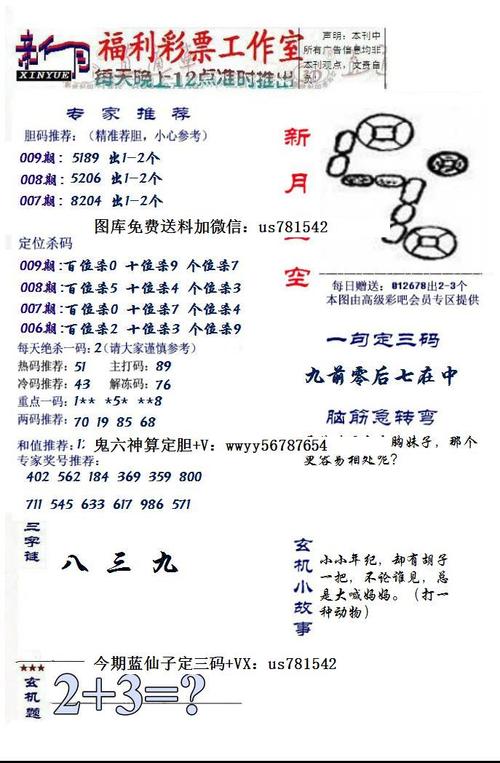 XINYUE
福利彩票工作室
每天晚上12点准时推出
声明:本刊中
所有广告信息均非
本刊观点,文责自
专家推荐
胆码推荐:(精准荐胆,小心参考)
009期:5189 出1-2个
008期:5206 出1-2个
007期:8204 出1-2个
图库免费送料加微信:us781542
定位杀码
009期:百位杀0 十位杀9 个位杀7
008期:百位杀5 十位杀4 个位杀3
007期:百位杀0 十位杀4 个位杀7
006期:百位杀2 十位杀3 个位杀9
每天绝杀一码:2(请大家谨慎参考)
热码推荐:51 主打码:89
冷码推荐:43 解冻码:76
重点一码:1** *5* **8
两码推荐:70 19 85 68
和值推荐:
鬼六神算定胆+V:wwyy56787654
专家奖号推荐:
402 562 184 369 359 800
711 545 633 617 986 571
新
月
空
每日赠送:012678出2-3个
本图由高级彩吧会员专区提供
一句定三码
九前零后七在中
脑筋急转弯
胸妹子,那个
更容易相处呢?
三字谜
八三九
玄机小故事
小小年纪,却有胡子
一把,不论谁见,总
是大喊妈妈。(打一
种动物)
今期蓝仙子定三码+VX:us781542
★★★
玄机题
2+3=?